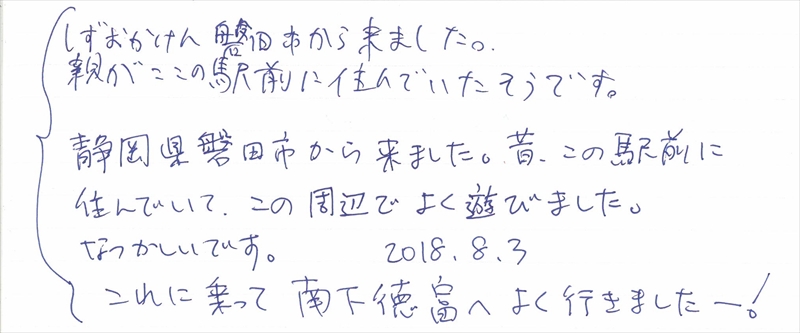 しずおかけん磐田市から来ました。
親がここの駅前に住んでいたそうです。
静岡県磐田市から来ました。昔、この駅前に
住んでいて、この周辺でよく遊びました。
なつかしいです。 2018.8.3
これに乗って南下徳富へよく行きましたー!